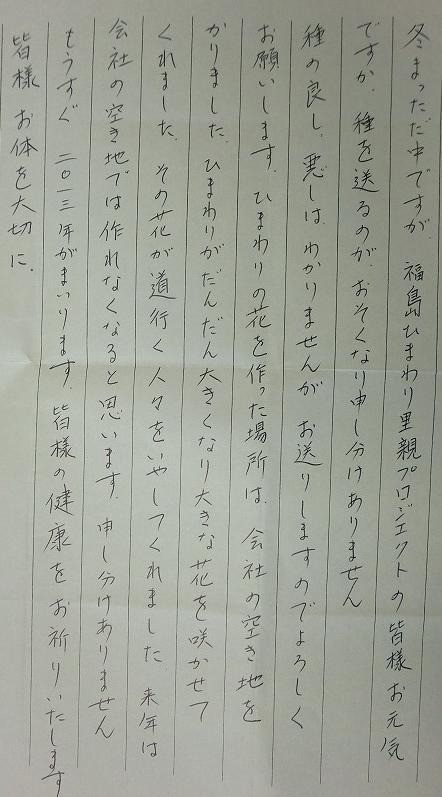 冬まっただ中ですが、福島ひまわり里親プロジェクトの皆様お元気
ですか、種を送るのが、おそくなり申し分けありません
種の良し、悪しは、わかりませんが お送りしますのでよろしく
お願いします。ひまわりの花を作った場所は、会社の空き地を
かりました、ひまわりがだんだん大きくなり大きな花を咲かせて
くれました、その花が道行く人々をいやしてくれました 来年は
会社の空き地では作れなくなると思います、申し分けありません
もうすぐ 二〇一三年がまいります、皆様の健康をお祈りいたします
皆様 お体を大切に、